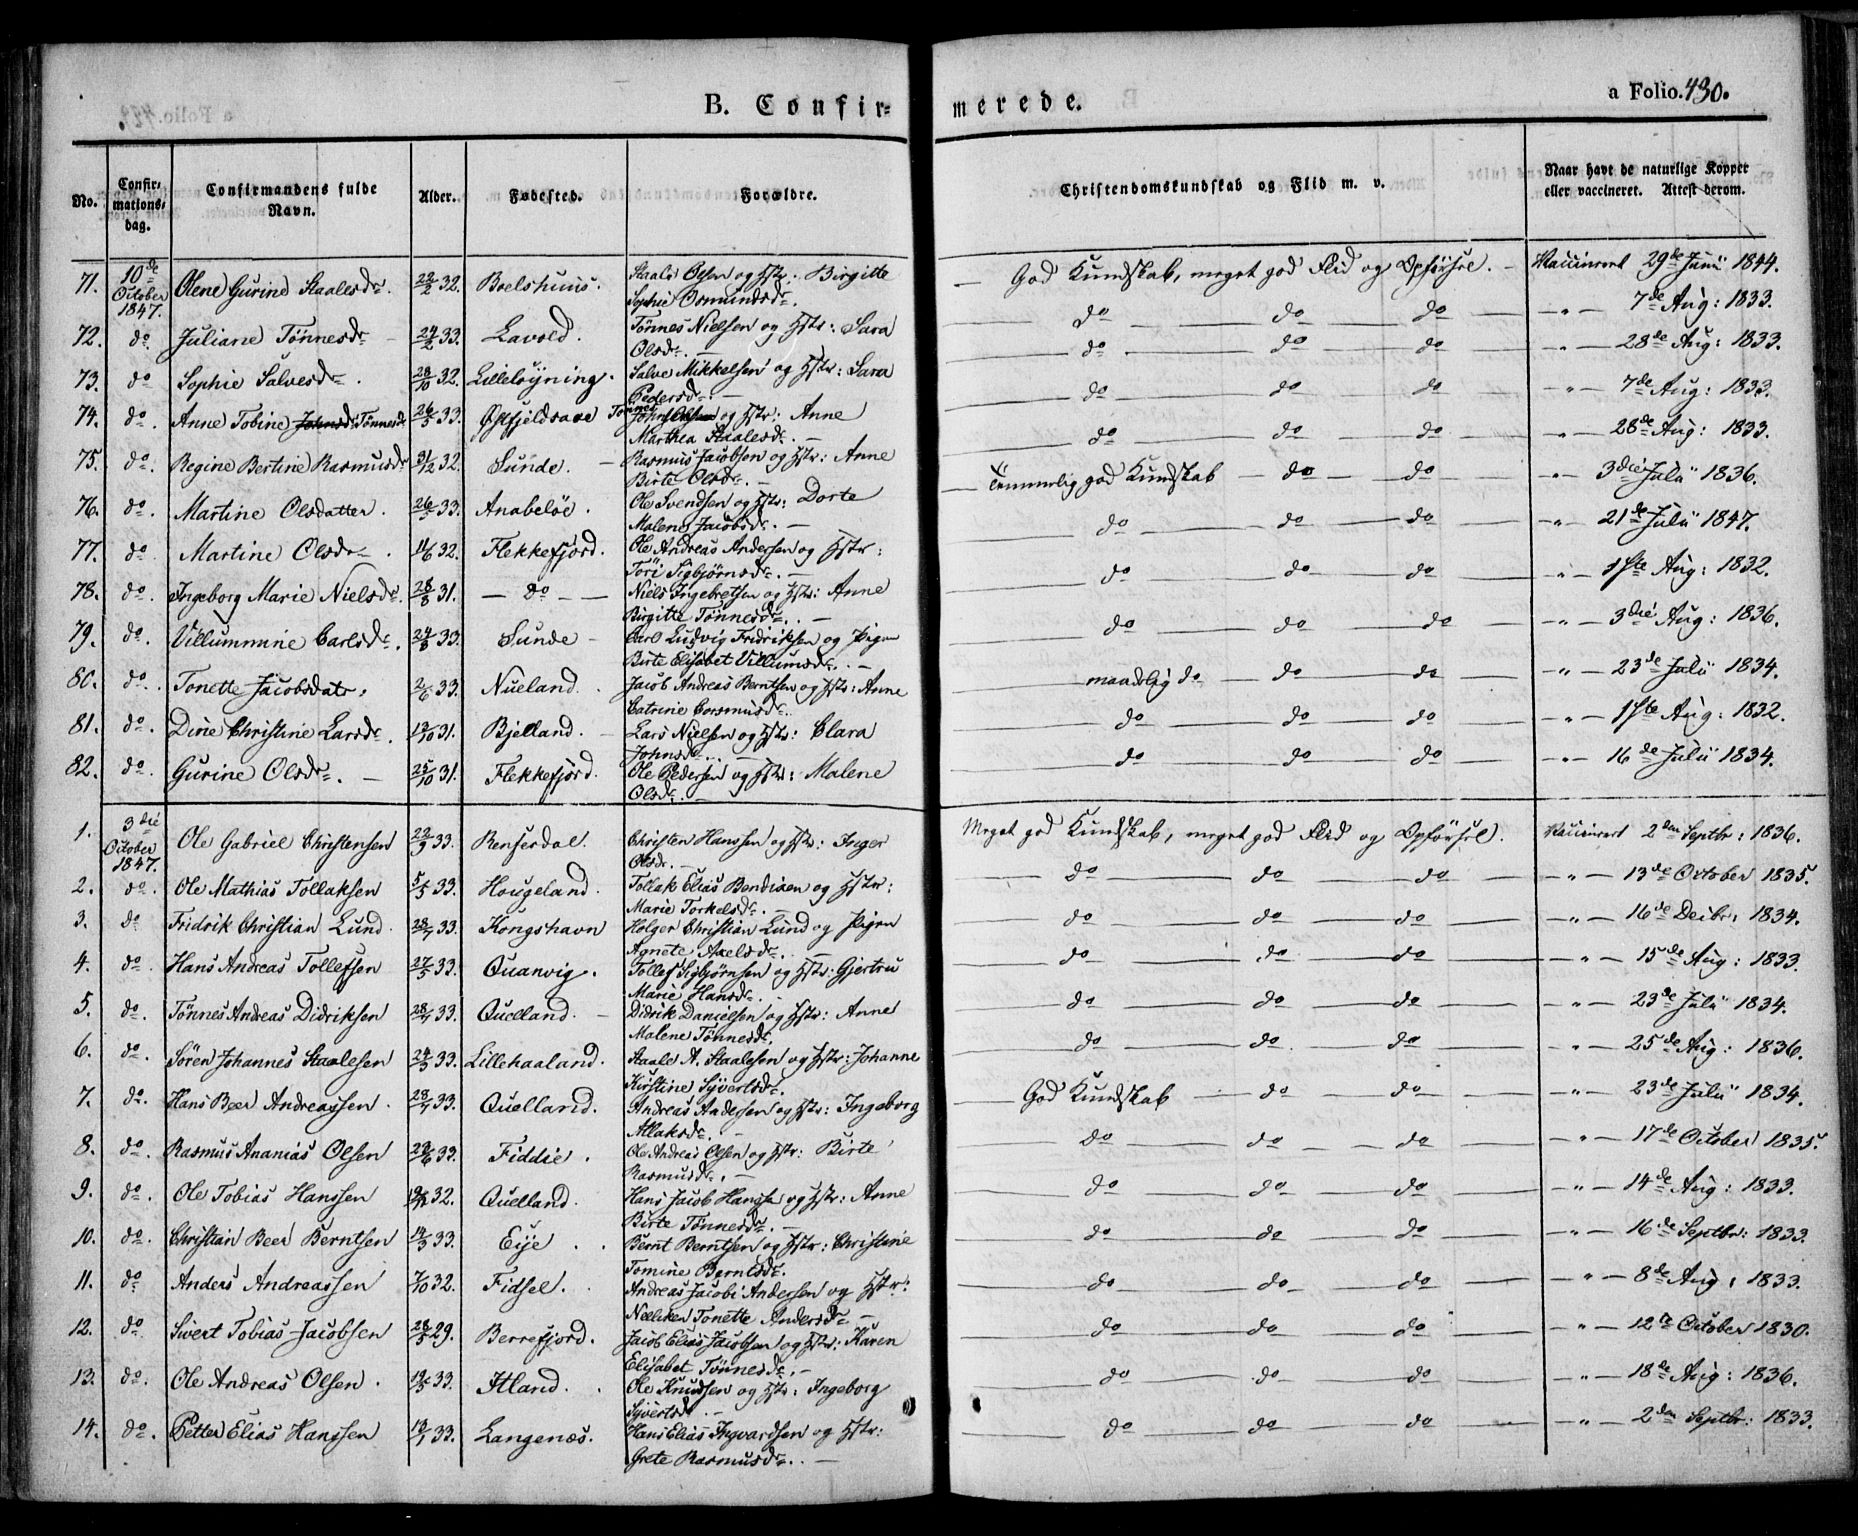 B. Confirmerede.
a Folio. 430.
No. Confirmationsdag. Confirmandens fulde Navn. Alder. Fødested. Forældre. Christendomskundskab og Flid m. v. Naar havt de naturlige Kopper eller vaccineret. Attest derom.
71. 10de October 1847. Olene Gurine Staalesdr. 22/2 32. Boelshuus. Staale Olsen og Hstr: Birgitte Sophie Osmundsdr. God Kundskab, meget god Flid og Opførsel. Vaccineret 29de Juni 1844.
72. do. Juliane Tønnesdr 24/2 33. Lavold. Tønnes Nielsen og Hstr: Sara Olsdr. do do do " 7de Aug: 1833.
73. do Sophie Salvesdr. 28/10 32. Lilleløyning. Salve Mikkelsen og Hstr: Sara Pedersdr. do do do " 28de Aug: 1833.
74. do. Anne Tobine Johnsd: Tønnesd: 26/5 33. Østfjeldsaae Tønnes Olsen og Hstr: Anne Marthea Staalesdr. do do do " 7de Aug: 1833.
75. do. Regine Bertine Rasmusdr 31/12 32. Sunde. Rasmus Jacobsen og Hstr: Anne Birte Olsdr. do do do " 28de Aug: 1833.
76. do. Martine Olsdatter. 26/5 33. Anabeløe. Ole Svendsen og Hstr: Dorte Malene Jacobsdr. Temmerlig god Kundskab do do " 3die Juli 1836.
77. do. Martine Olsdr. 11/6 32. Flekkefjord. Ole Andreas Andersen og Hstr: Tori Sigbjørnsdr. do do do " 21de Juli 1847.
78. do. Ingeborg Marie Nielsdr. 28/8 31. do Niels Ingebretsen og Hstr: Anne Birgitte Tønnesdr. do do do " 1ste Aug: 1832.
79. do. Villummine Carlsdr. 24/8 33. Sunde Carl Ludvig Fridriksen og Pigen Birte Elisabet Villumsdr. do do do " 3die Aug: 1836.
80. do. Tonette Jacobsdatr. 2/6 33. Nueland. Jacob Andreas Berntsen og Hstr: Anne Catrine Corsmusdr. maadelig do do do " 23de Juli 1834.
81. do. Dine Christine Larsdr. 13/10 31. Bjelland. Lars Nielsen og Hstr: Clara Johnsdr. do do do " 1ste Aug: 1832.
82. do. Gurine Olsdr. 25/10 31. Flekkefjord. Ole Pedersen og Hstr: Malene Olsdr. do do do " 16de Juli 1834.
1. 3die October 1847. Ole Gabriel Christensen 22/9 33. Rensesdal. Christen Hanssen og Hstr: Inger Olsdr. Meget god Kundskab, meget god Flid og Opførsel. Vaccineret 2den Septbr: 1836.
2. do. Ole Mathias Tollaksen 5/5 33. Hougeland. Tollak Elias Bendixen og Hstr: Marie Torkelsdr. do do do " 13de October 1835.
3. do Fridrik Christian Lund. 28/7 33. Kongshavn Holger Christian Lund og Pigen Agnete Axelsdr. do do do " 16de Decbr: 1834.
4. do. Hans Andreas Tollefsen 27/5 33. Quanvig. Tollef Sigbjørnsen og Hstr: Gjertru Marie Hansdr. do do do " 15de Aug: 1833.
5. do. Tønnes Andreas Didriksen 28/4 33. Quelland. Didrik Danielsen og Hstr: Anne Malene Tønnesdr. do do do " 23de Juli 1834.
6. do. Sören Johannes Staalesen 24/5 33. Lillehaaland. Staale A. Staalesen og Hstr: Johanne Kirstine Syvertsdr. do do do " 25de Aug: 1836.
7. do. Hans Beer Andreassen. 28/4 33. Quelland. Andreas Andersen og Hstr: Ingeborg Atlaksdr. God Kundskab do do " 23de Juli 1834.
8. do. Rasmus Ananias Olsen 23/6 33. Fiddie. Ole Andreas Olsen og Hstr: Birte Rasmusdr. do do do " 17de October 1835.
9. do. Ole Tobias Hanssen 32. Quelland. Hans Jacob Hanssen og Hstr: Anne Birte Tønnesdr. do do do " 14de Aug: 1833.
10. do. Christian Beer Berntsen 14/3 33. Eije. Bernt Berntsen og Hstr: Christine Tomine Berntsdr. do do do " 16de Septbr: 1833.
11. do Anders Andreassen 7/10 32. Fidsel. Andreas Jacobi Andersen og Hstr: Nelliken Tonette Andersdr do do do " 8de Aug: 1833.
12. do Sivert Tobias Jacobsen 28/5 29. Berrefjord. Jacob Elias Jacobsen og Hstr: Karen Elisabet Tønnesdr. do do do " 12te October 1830.
13. do. Ole Andreas Olsen. 19/5 33. Itland. Ole Knudsen og Hstr: Ingeborg Syvertsdr. do do do " 18de Aug: 1836.
14. do. Petter Elias Hanssen 13/1 33. Langenæs. Hans Elias Ingvardsen og Hstr: Grete Rasmusdr. do do do " 2den Septbr: 1833.